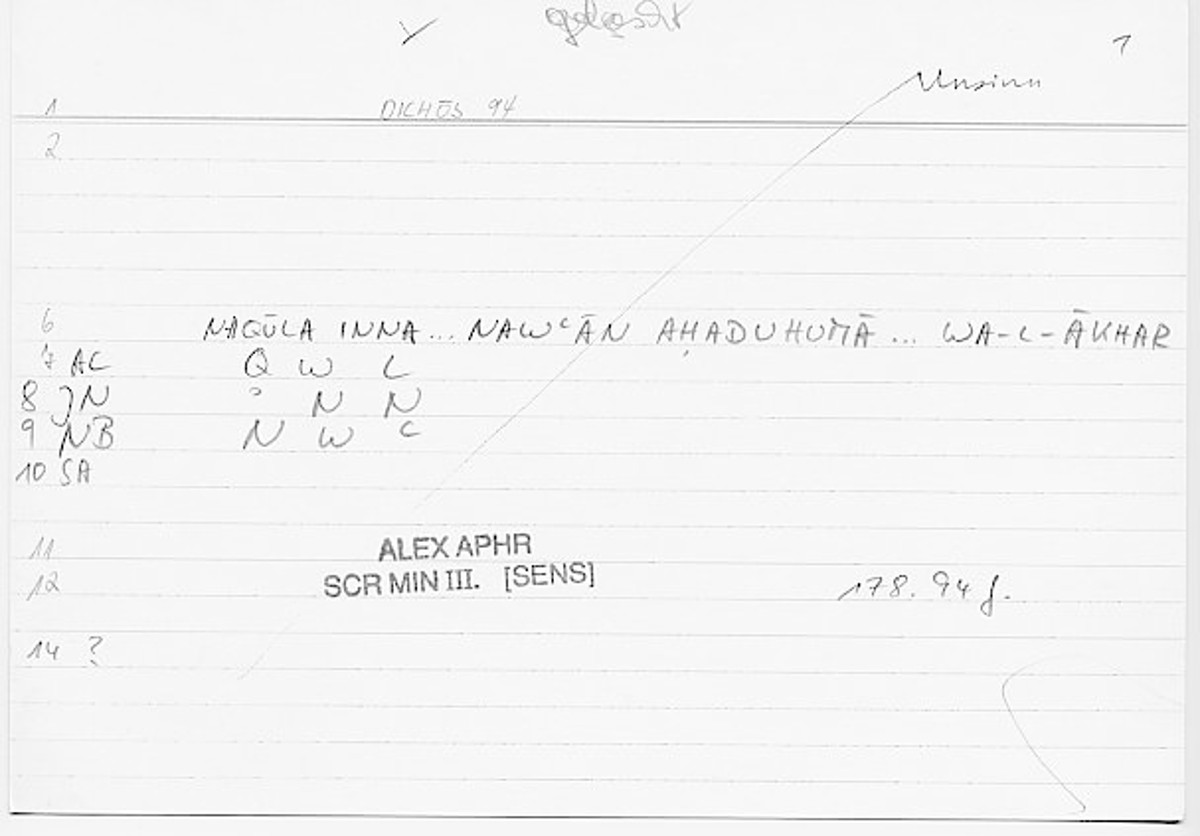 gelöscht
1
Unsinn
1 DICHŌS 94
2
6 NAQŪLA INNA... NAWʿĀN AḤADUHUMĀ ... WA-L-ĀKHAR
7 AC Q W L
8 JN ʾ N N
9 NB N W ʿ
10 SA
11 ALEX APHR
12 SCR MIN III. [SENS] 178.94 f.
14 ?